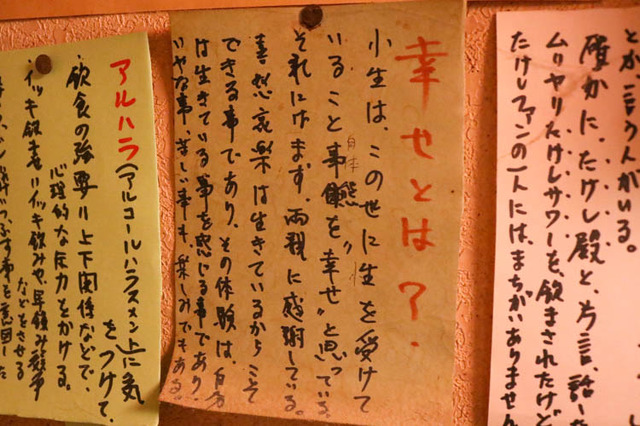 とか言う人がいる。
確かに、たけし殿と、片言、話した
ムリヤリたけしサワーを、飲まされたけど
たけしファンの一人には、まちがいありません
幸せとは?.
小生は、この世に性を受けて
いること事態を“幸せ”と思っている。
自体
それにはまず両親に感謝している。
喜怒哀楽は生きているからこそ
できる事であり、その体験は、自分
は生きている事を感じる事であり
いやな事、苦しい事も、楽しみでもある。
アルハラ(アルコールハラスメント)に気
をつけて、
飲食の強要〃上下関係などで、
心理的な圧力をかける。
イッキ飲ませ〃イッキ飲みや、早飲み競争
などをさせる